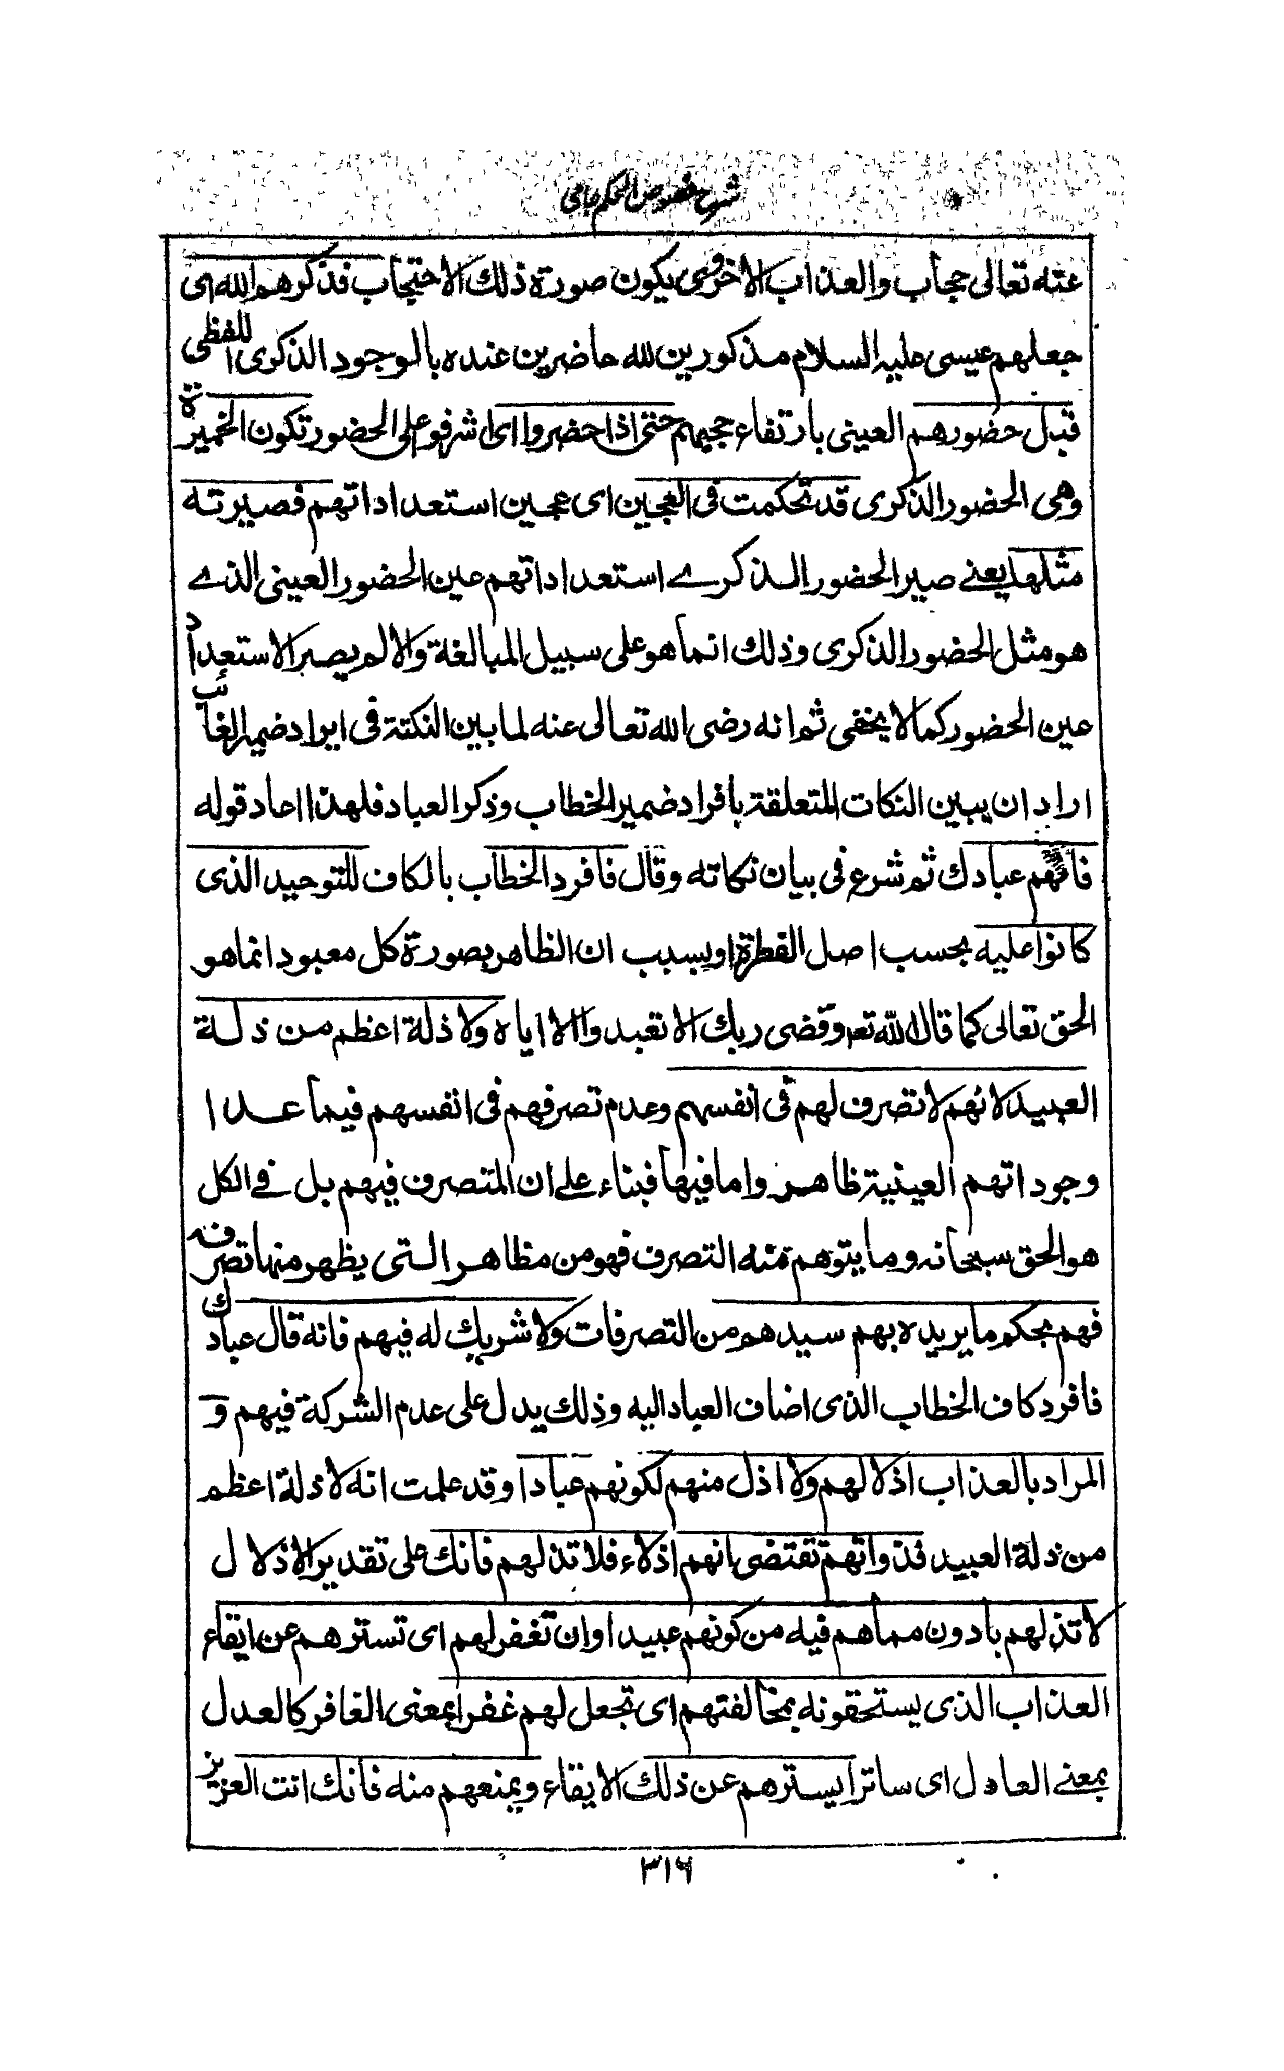 شرح فصوص الحكم جامي
عنه تعالى حجاب والعذاب الاخروى يكون صورة ذلك الاحتجاب فذكرهم الله اى
جعلهم عيسى عليه السلام مذكورين لله حاضرين عنده بالوجود الذكرى اللفظى
قبل حضورهم العينى بارتفاع حجبهم حتى اذا حضروا اى اشرفوا على الحضور تكون الخميرة
وهى الحضور الذكرى قد تحكمت فى العجين اى عجين استعداداتهم فصيرته
مثلها يعنے صير الحضور الذكرے استعداداتهم عين الحضور العينى الذے
هو مثل الحضور الذكرى وذلك انما هو على سبيل المبالغة والا لم يصر الاستعداد
عين الحضور كما لا يخفى ثم انه رضى الله تعالى عنه لما بين النكتة فى ايراد ضمير الغائب
اراد ان يبين النكات المتعلقة بافراد ضمير الخطاب وذكر العباد فلهذا اعاد قوله
فانهم عبادك ثم شرع فى بيان نكاته وقال فافرد الخطاب بالكاف للتوحيد الذى
كانوا عليه بحسب اصل الفطرة او بسبب ان الظاهر بصورة كل معبود انما هو
الحق تعالى كما قال الله تعر وقضى ربك الا تعبدوا الا اياه ولا ذلة اعظم من ذلة
العبيد لانهم لا تصرف لهم فى انفسهم وعدم تصرفهم فى انفسهم فيما عدا
وجوداتهم العينية ظاهر واما فيها فبناء علے ان المتصرف فيهم بل فے الكل
هو الحق سبحانه وما يتوهم منه التصرف فهو من مظاهر التى يظهر منها تصرفه
فهم بحكم ما يريده بهم سيدهم من التصرفات ولا شريك له فيهم فانه قال عبادك
فافرد كاف الخطاب الذى اضاف العباد اليه وذلك يدل على عدم الشركة فيهم و
المراد بالعذاب اذلالهم ولا اذل منهم لكونهم عبادا وقد علمت انه لا ذلة اعظم
من ذلة العبيد فذواتهم تقتضى انهم اذلاء فلا تذلهم فانك على تقدير الاذلال
لا تذلهم بادون مما هم فيه من كونهم عبيدا وان تغفر لهم اى تسترهم عن ايقاع
العذاب الذى يستحقونه بمخالفتهم اى تجعل لهم غفرا بمعنى الغافر كالعدل
بمعنے العادل اى ساترا يسترهم عن ذلك الايقاع ويمنعهم منه فانك انت العزيز
۳۱۶